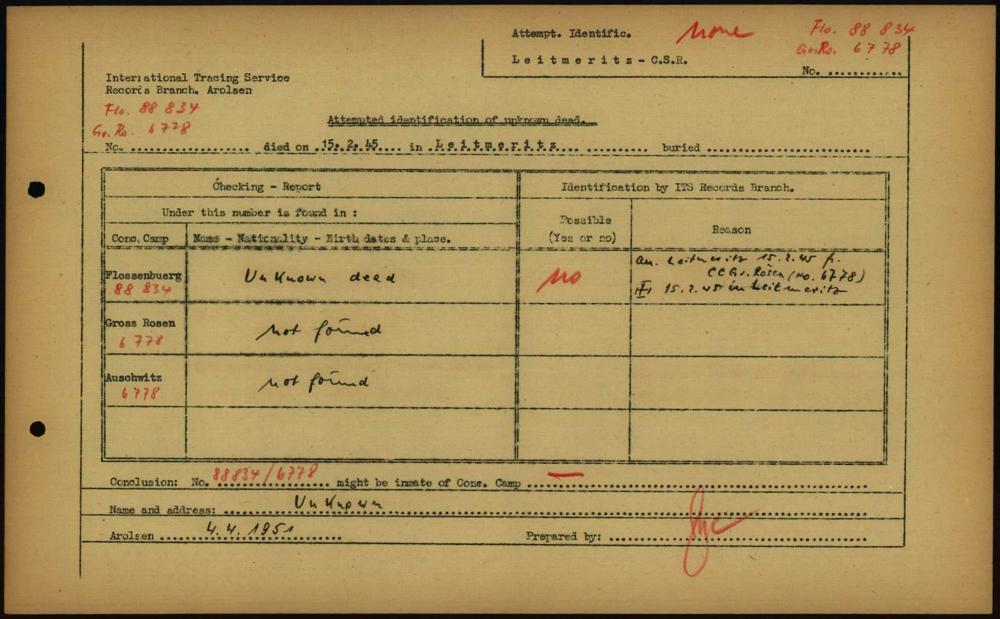 Attempt. Identific. none
Flo. 88 834
Gr.Ro. 6778
Leitmeritz - C.S.R.
No. ............
International Tracing Service
Records Branch, Arolsen
Flo. 88 834
Gr. Ro. 6778
Attempted identification of unknown dead.
No. .................. died on .15. 2. 45.... in .Leitmeritz.... .......... buried ........................
Checking - Report
Identification by ITS Records Branch.
Under this number is found in :
Possible (Yes or no)
Reason
Conc. Camp
Name - Nationality - Birth dates & place.
Flossenbuerg 88 834
Unknown dead
no
An. Leitmeritz 15.2.45 fr.
CC Gr. Rosen (no. 6778)
15.2.45 in Leitmeritz
Gross Rosen 6778
not found
Auschwitz 6778
not found
Conclusion: No. 88834/6778 might be inmate of Conc. Camp — ..........
Name and address: Unknown
Arolsen 4.4.1951 Prepared by: ..........